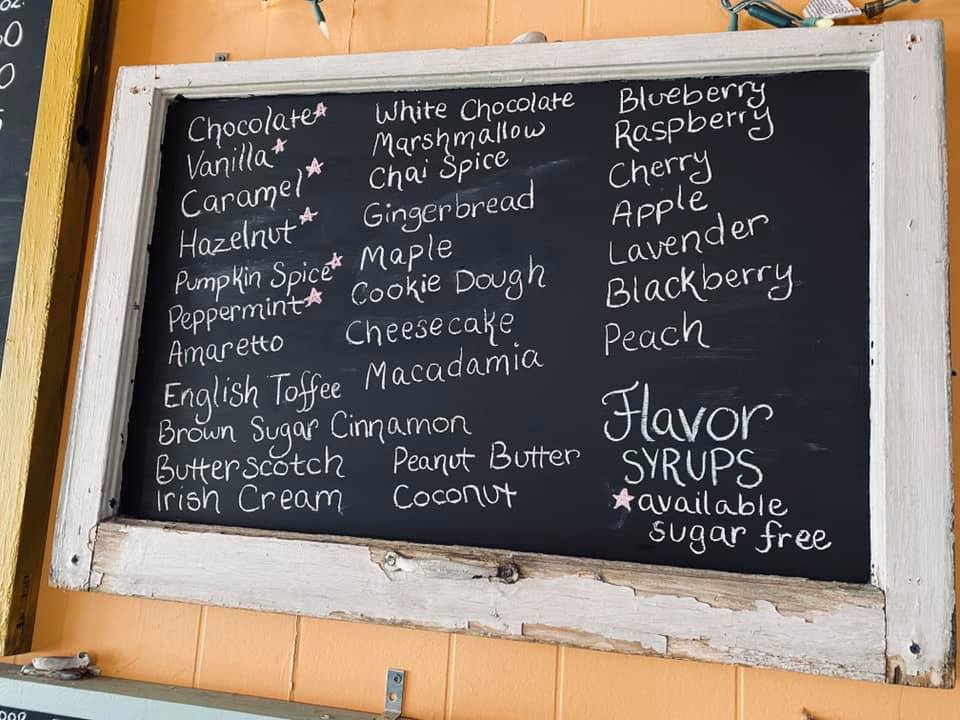 Chocolate
Vanilla
Caramel
Hazelnut
Pumpkin Spice
Peppermint
Amaretto
English Toffee
Brown Sugar Cinnamon
Butterscotch
Irish Cream
White Chocolate
Marshmallow
Chai Spice
Gingerbread
Maple
Cookie Dough
Cheesecake
Macadamia
Peanut Butter
Coconut
Blueberry
Raspberry
Cherry
Apple
Lavender
Blackberry
Peach
Flavor
SYRUPS
available
sugar free